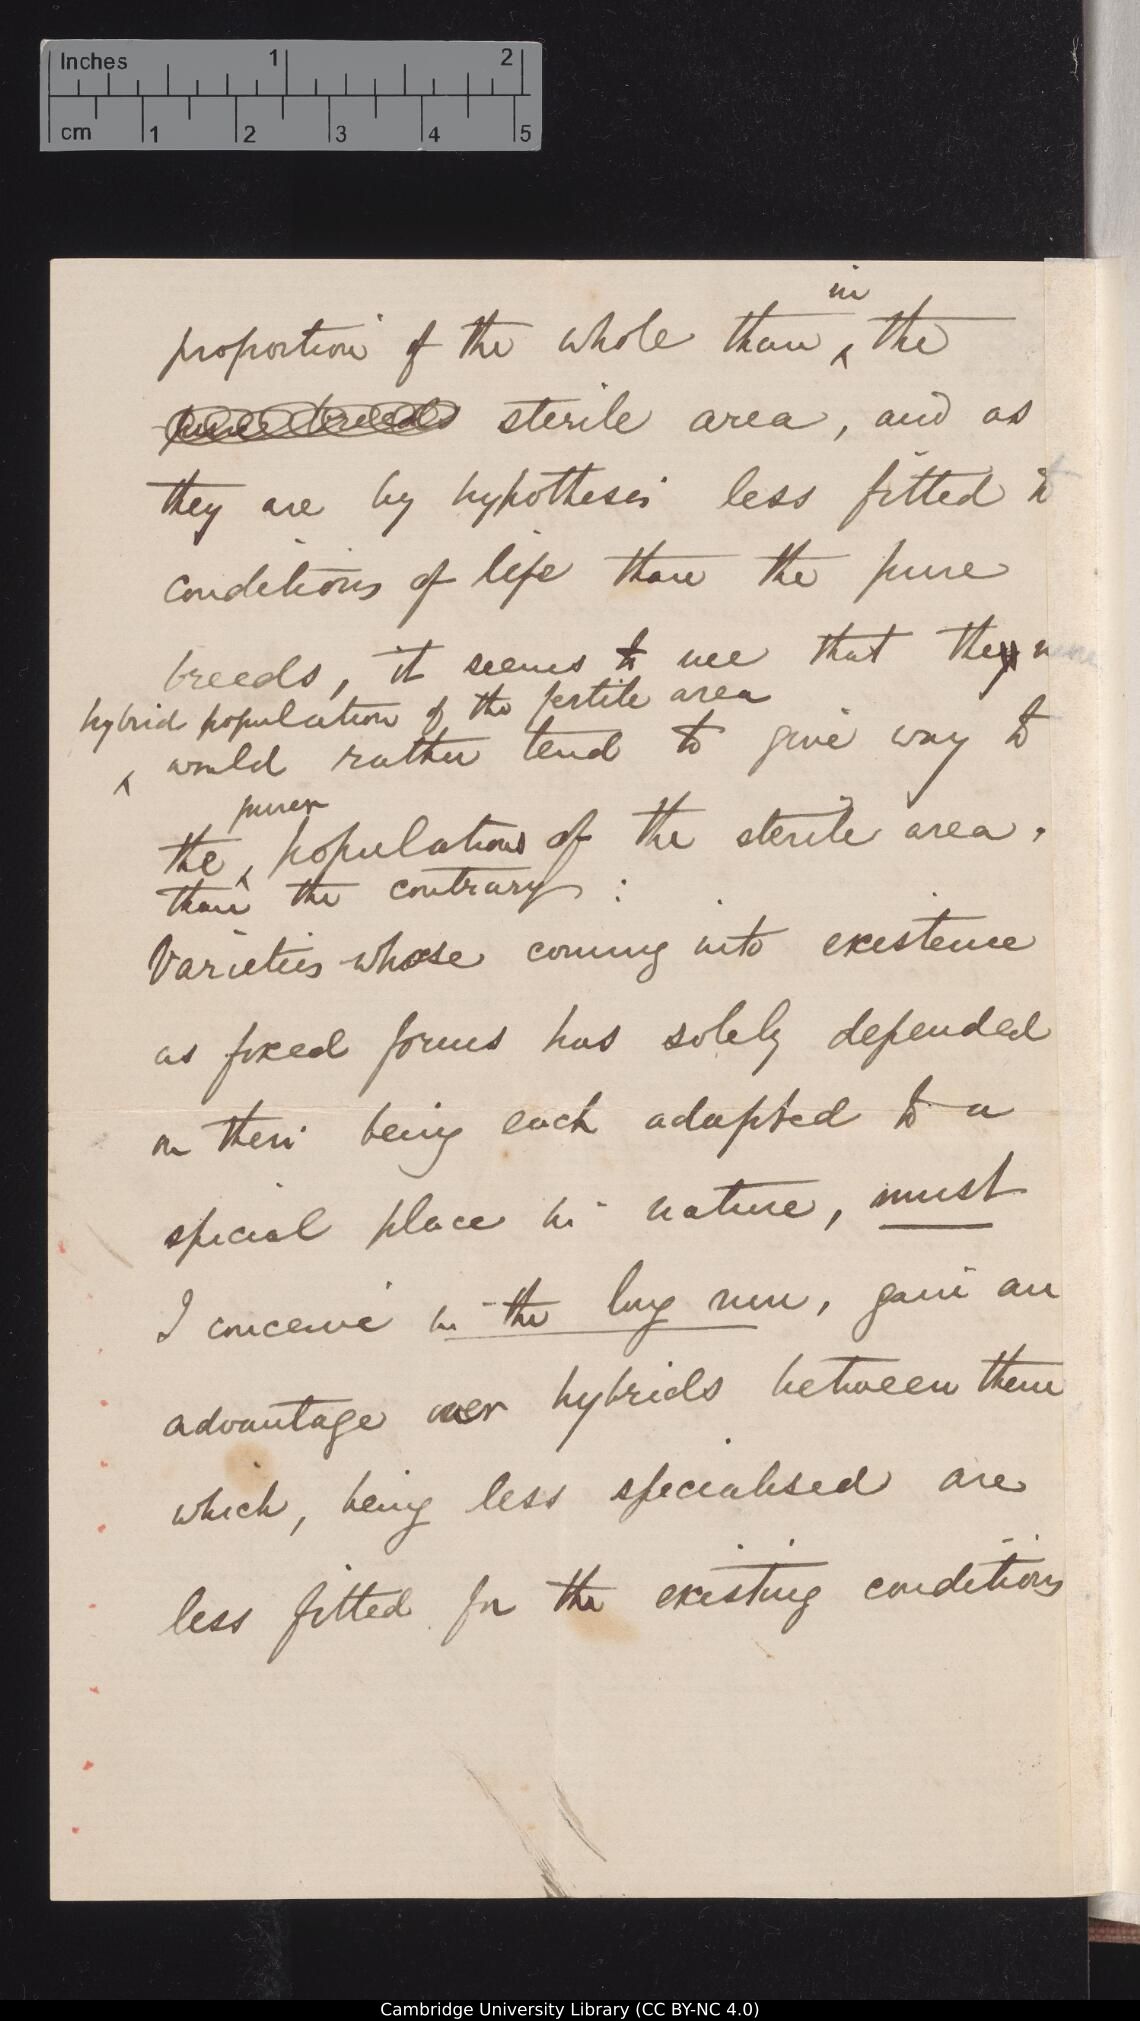 Inches 1 2
cm 1 2 3 4 5
in
proportion of the whole than ‸ the
pure breeds sterile area, and as
they are by hypothesis less fitted to
conditions of life than the pure
breeds, it seems to me that the
hybrid population of the fertile area
‸ would rather tend to give way to
purer
the ‸ populations of the sterile area,
than the contrary :
Varieties whose coming into existence
as fixed forms has solely depended
on their being each adapted to a
special place in nature, must
I conceive in the long run, gain an
advantage over hybrids between them
which, being less specialised are
less fitted for the existing conditions
Cambridge University Library (CC BY-NC 4.0)